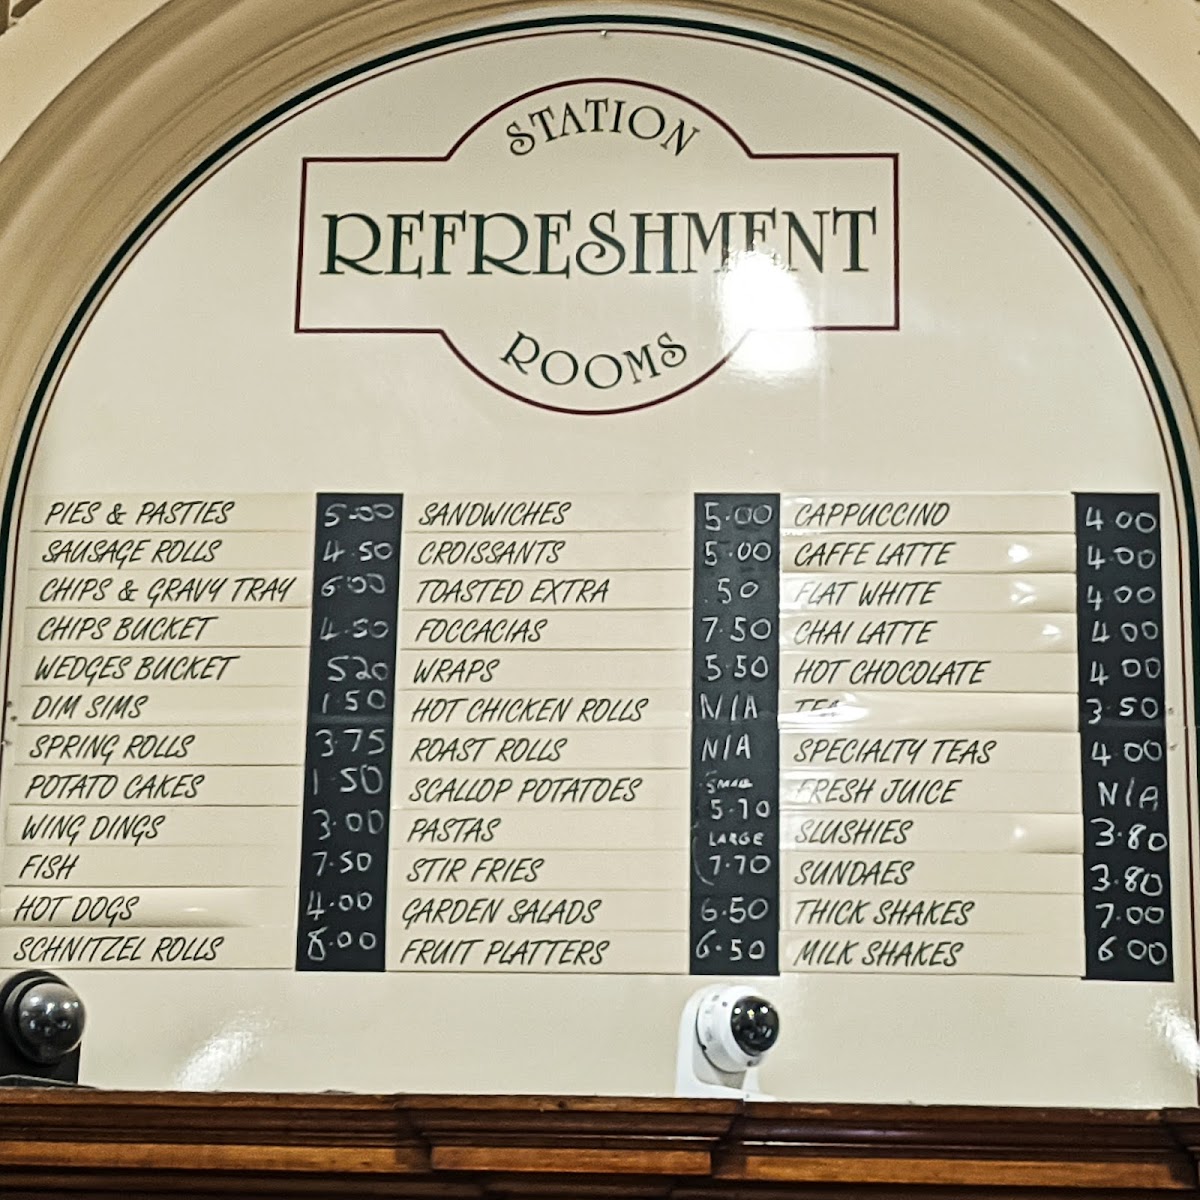 STATION
REFRESHMENT
ROOMS
PIES & PASTIES 5.00
SAUSAGE ROLLS 4.50
CHIPS & GRAVY TRAY 6.00
CHIPS BUCKET 4.50
WEDGES BUCKET 520
DIM SIMS 1.50
SPRING ROLLS 3.75
POTATO CAKES 1.50
WING DINGS 3.00
FISH 7.50
HOT DOGS 4.00
SCHNITZEL ROLLS 8.00
SANDWICHES 5.00
CROISSANTS 5.00
TOASTED EXTRA .50
FOCCACIAS 7.50
WRAPS 5.50
HOT CHICKEN ROLLS N/A
ROAST ROLLS N/A
SCALLOP POTATOES SMALL
5.70
PASTAS LARGE
STIR FRIES 7.70
GARDEN SALADS 6.50
FRUIT PLATTERS 6.50
CAPPUCCINO 4.00
CAFFE LATTE 4.00
FLAT WHITE 4.00
CHAI LATTE 4.00
HOT CHOCOLATE 4.00
TEA 3.50
SPECIALTY TEAS 4.00
FRESH JUICE N/A
SLUSHIES 3.80
SUNDAES 3.80
THICK SHAKES 7.00
MILK SHAKES 6.00